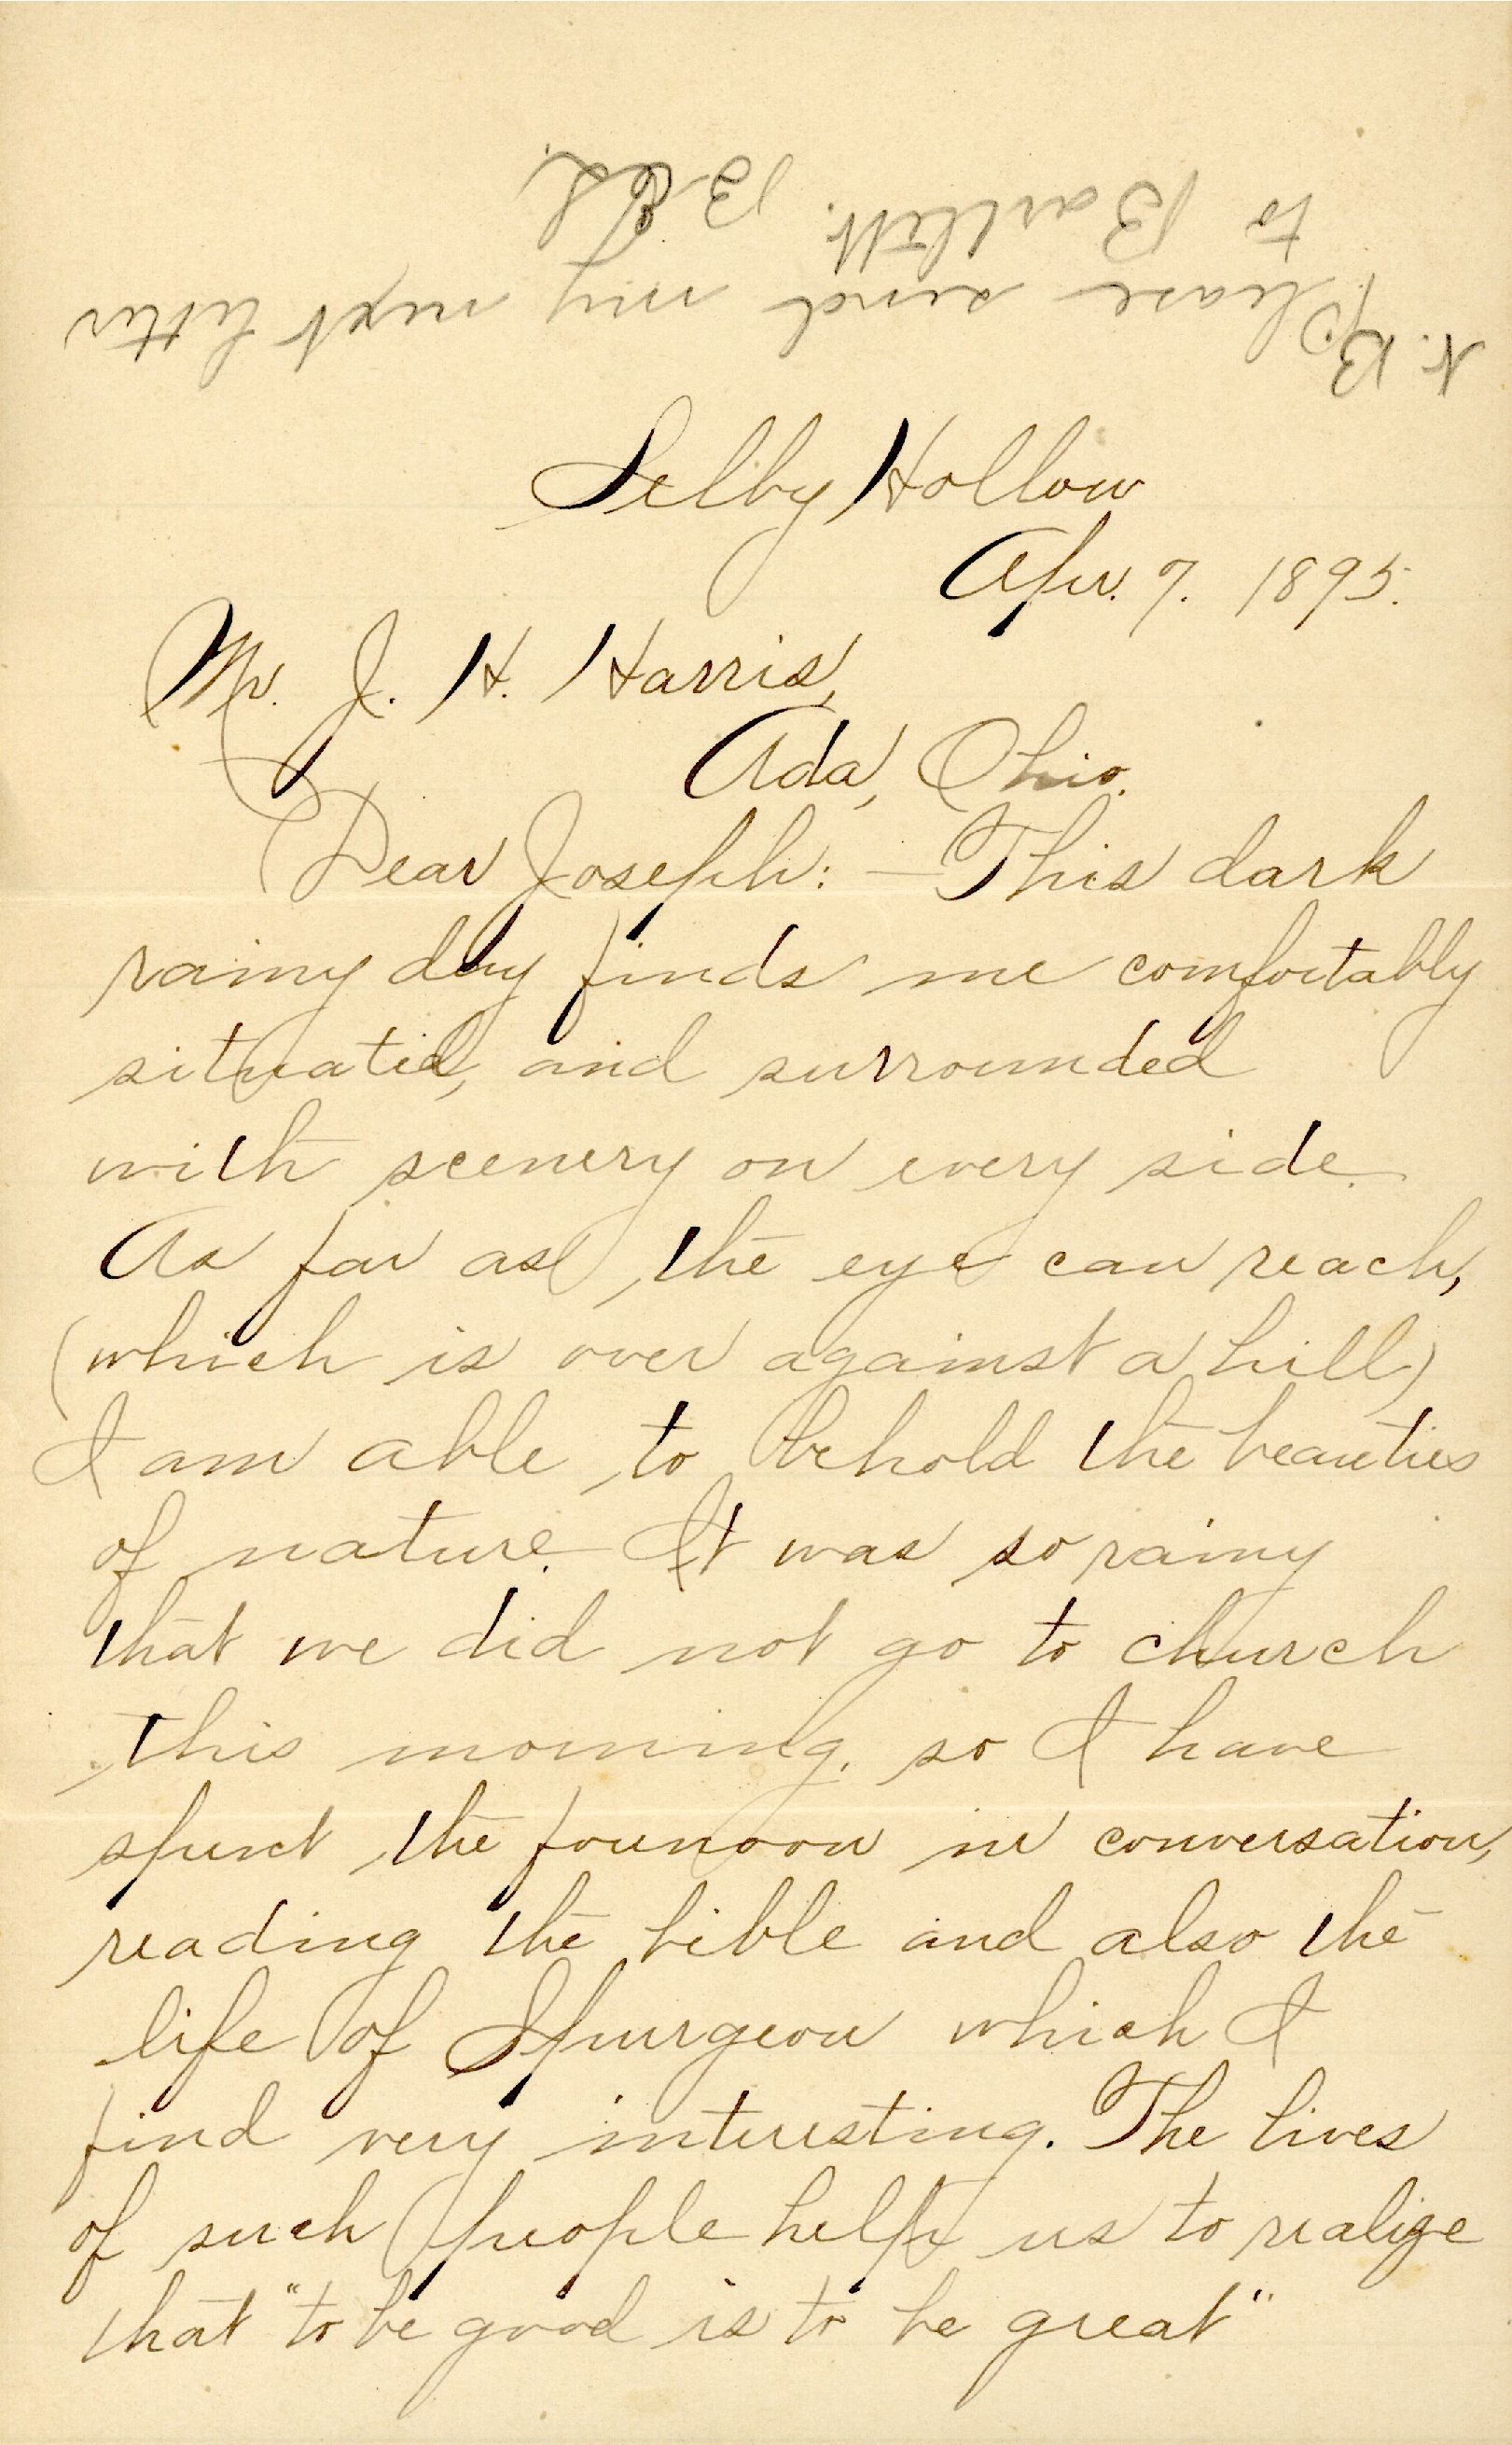 N.B. Please send my next letter
to Bartlett.
Selby Hollow
Apr. 7. 1895.
Mr. J. H. Harris,
Ada, Ohio.
Dear Joseph: — This dark
rainy day finds me comfortably
situated, and surrounded
with scenery on every side.
As far as the eye can reach,
(which is over against a hill)
I am able to behold the beauties
of nature. It was so rainy
that we did not go to church
this morning, so I have
spent the forenoon in conversation,
reading the bible and also the
life of Spurgeon which I
find very interesting. The lives
of such people help us to realize
that "to be good is to be great"